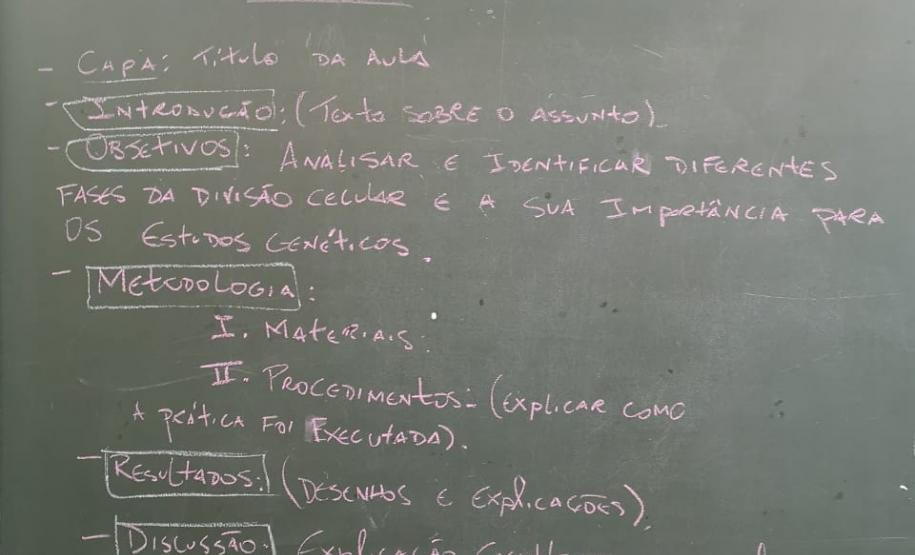 - CAPA: TÍTULO DA AULA
- INTRODUÇÃO: (TEXTO SOBRE O ASSUNTO)
- OBJETIVOS: ANALISAR E IDENTIFICAR DIFERENTES
FASES DA DIVISÃO CELULAR E A SUA IMPORTÂNCIA PARA
OS ESTUDOS GENÉTICOS.
- METODOLOGIA:
I. MATERIAIS:
II. PROCEDIMENTOS: (EXPLICAR COMO
A PRÁTICA FOI EXECUTADA).
- RESULTADOS: (DESENHOS E EXPLICAÇÕES)
- DISCUSSÃO: EXPLICAÇÃO